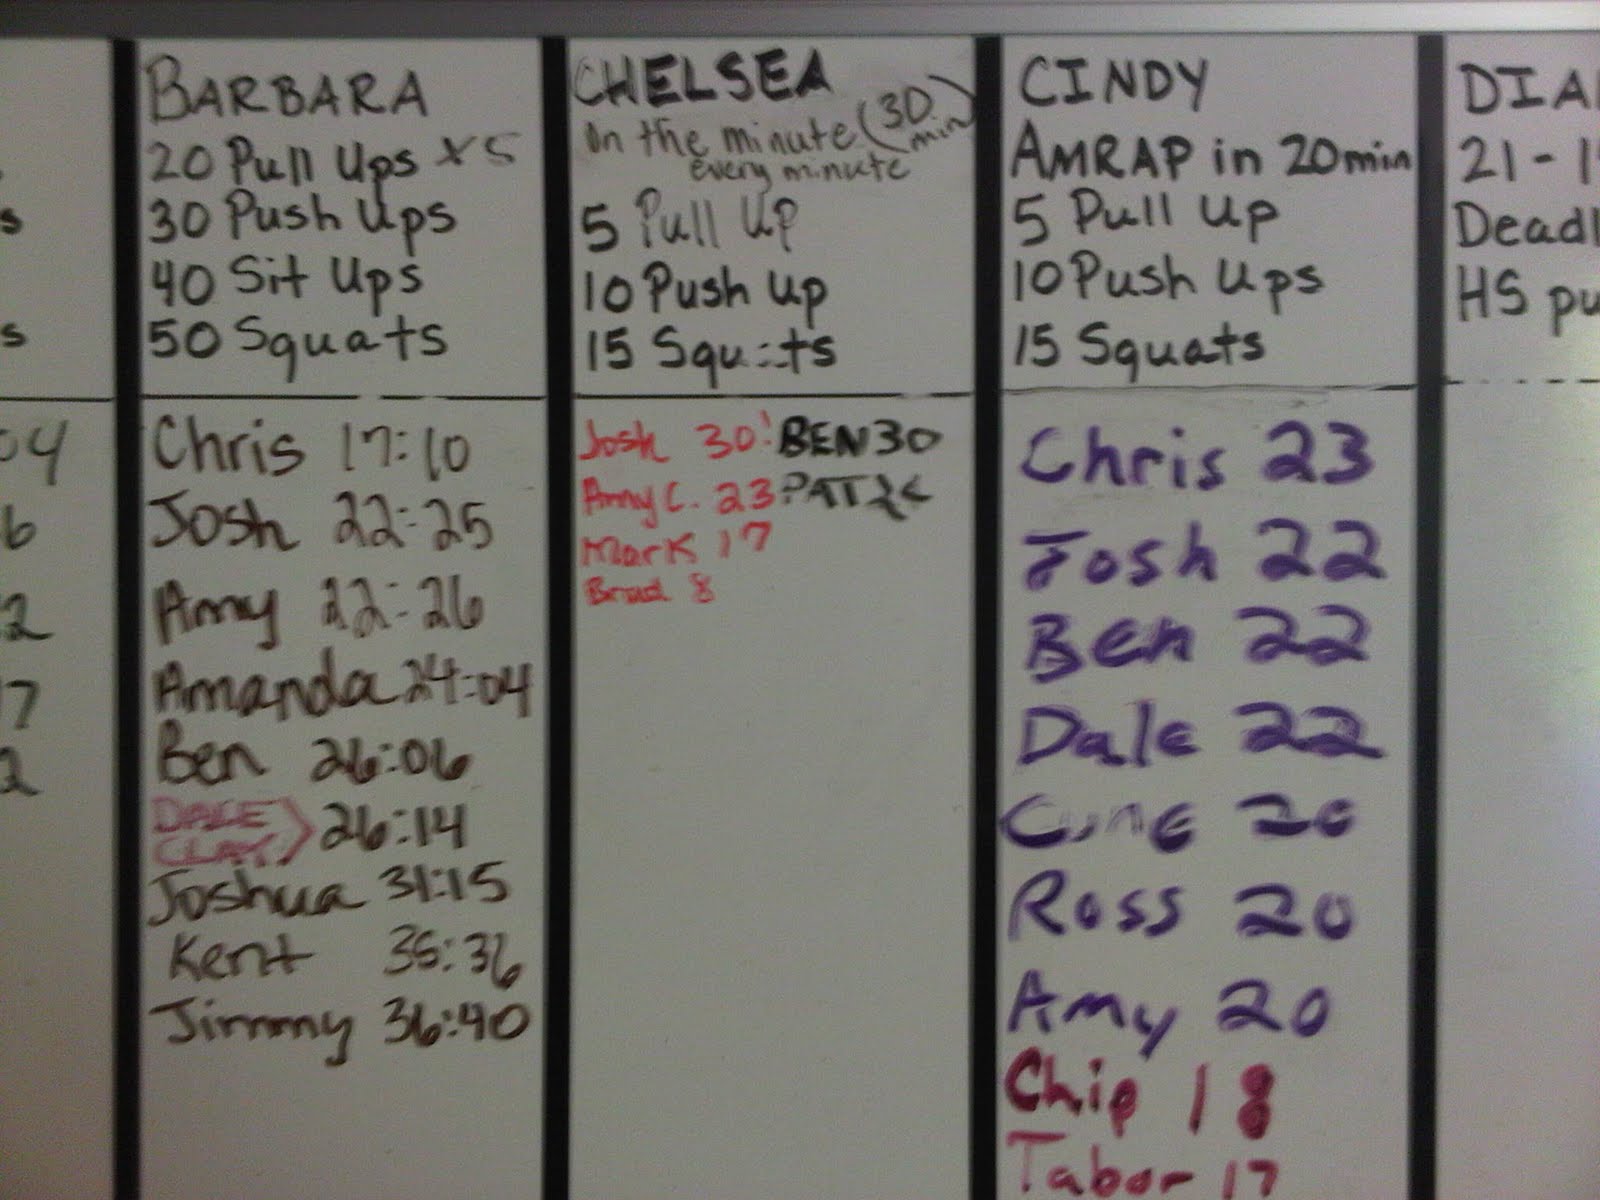 04
6
2
7
2
s
s
BARBARA
20 Pull Ups x5
30 Push Ups
40 Sit Ups
50 Squats
Chris 17:10
Josh 22:25
Amy 22:26
Amanda 24:04
Ben 26:06
DALE
CLAY } 26:14
Joshua 31:15
Kent 35:36
Jimmy 36:40
CHELSEA
On the minute (30 min)
every minute
5 Pull Up
10 Push up
15 Squats
Josh 30! BEN 30
Amy C. 23 PAT
Mark 17
Brad 8
CINDY
AMRAP in 20min
5 Pull Up
10 Push Ups
15 Squats
Chris 23
Josh 22
Ben 22
Dale 22
20
Ross 20
Amy 20
Chip 18
Tabor 17
DIA
21-1
Deadl
HS pu